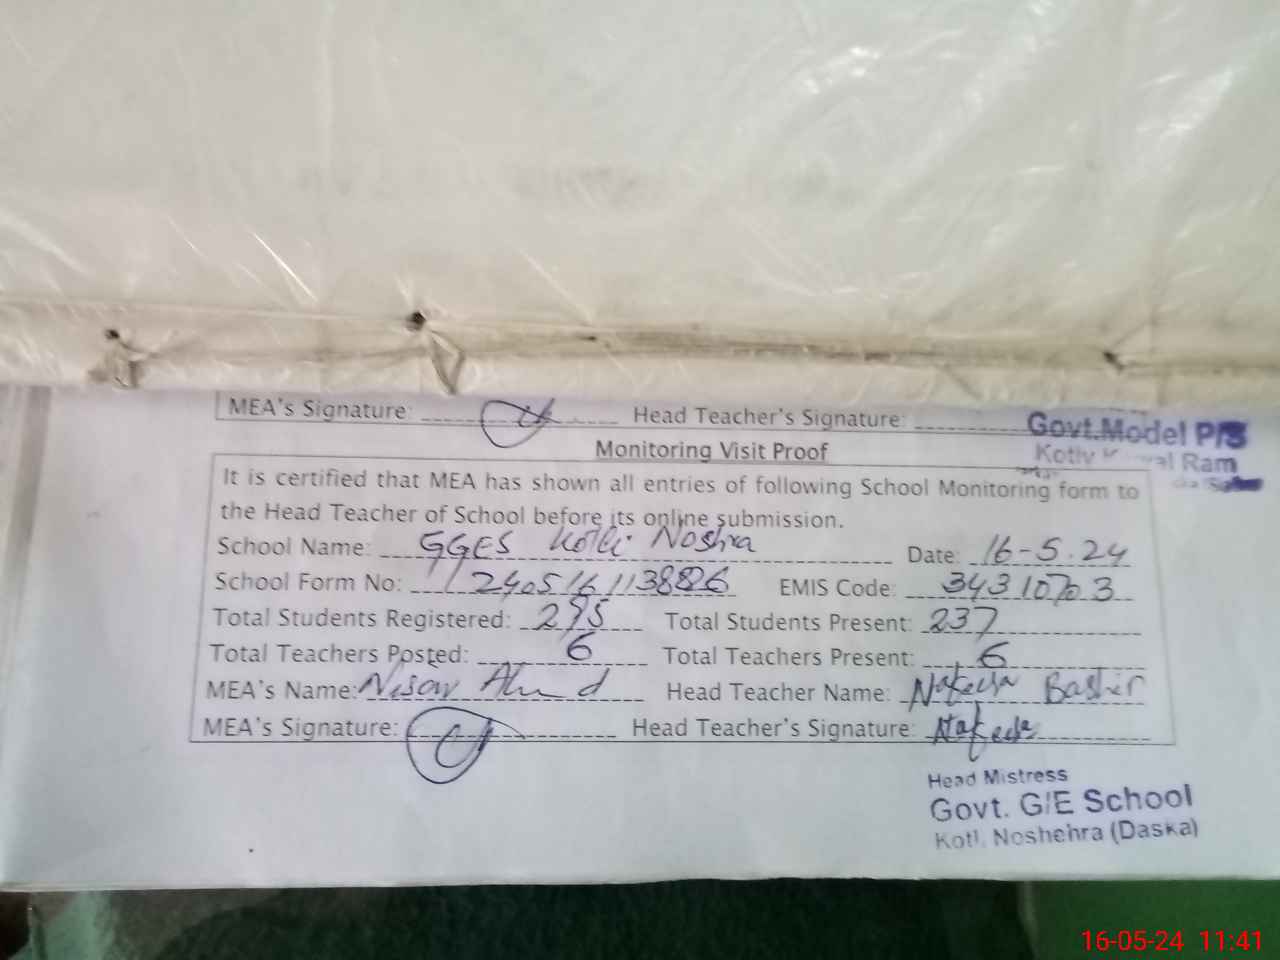 MEA's Signature: Head Teacher's Signature:
Govt. Model P/S
Kotly Ram
Monitoring Visit Proof
It is certified that MEA has shown all entries of following School Monitoring form to
the Head Teacher of School before its online submission.
School Name: GGES Kotli Noshra Date: 16-5.24
School Form No: EMIS Code: 34310703
Total Students Registered: 295 Total Students Present: 237
Total Teachers Posted: 6 Total Teachers Present: 6
MEA's Name: Nisar Ahmd Head Teacher Name: Bashir
MEA's Signature: Head Teacher's Signature:
Head Mistress
Govt. G/E School
Kotl. Noshehra (Daska)
16-05-24 11:41